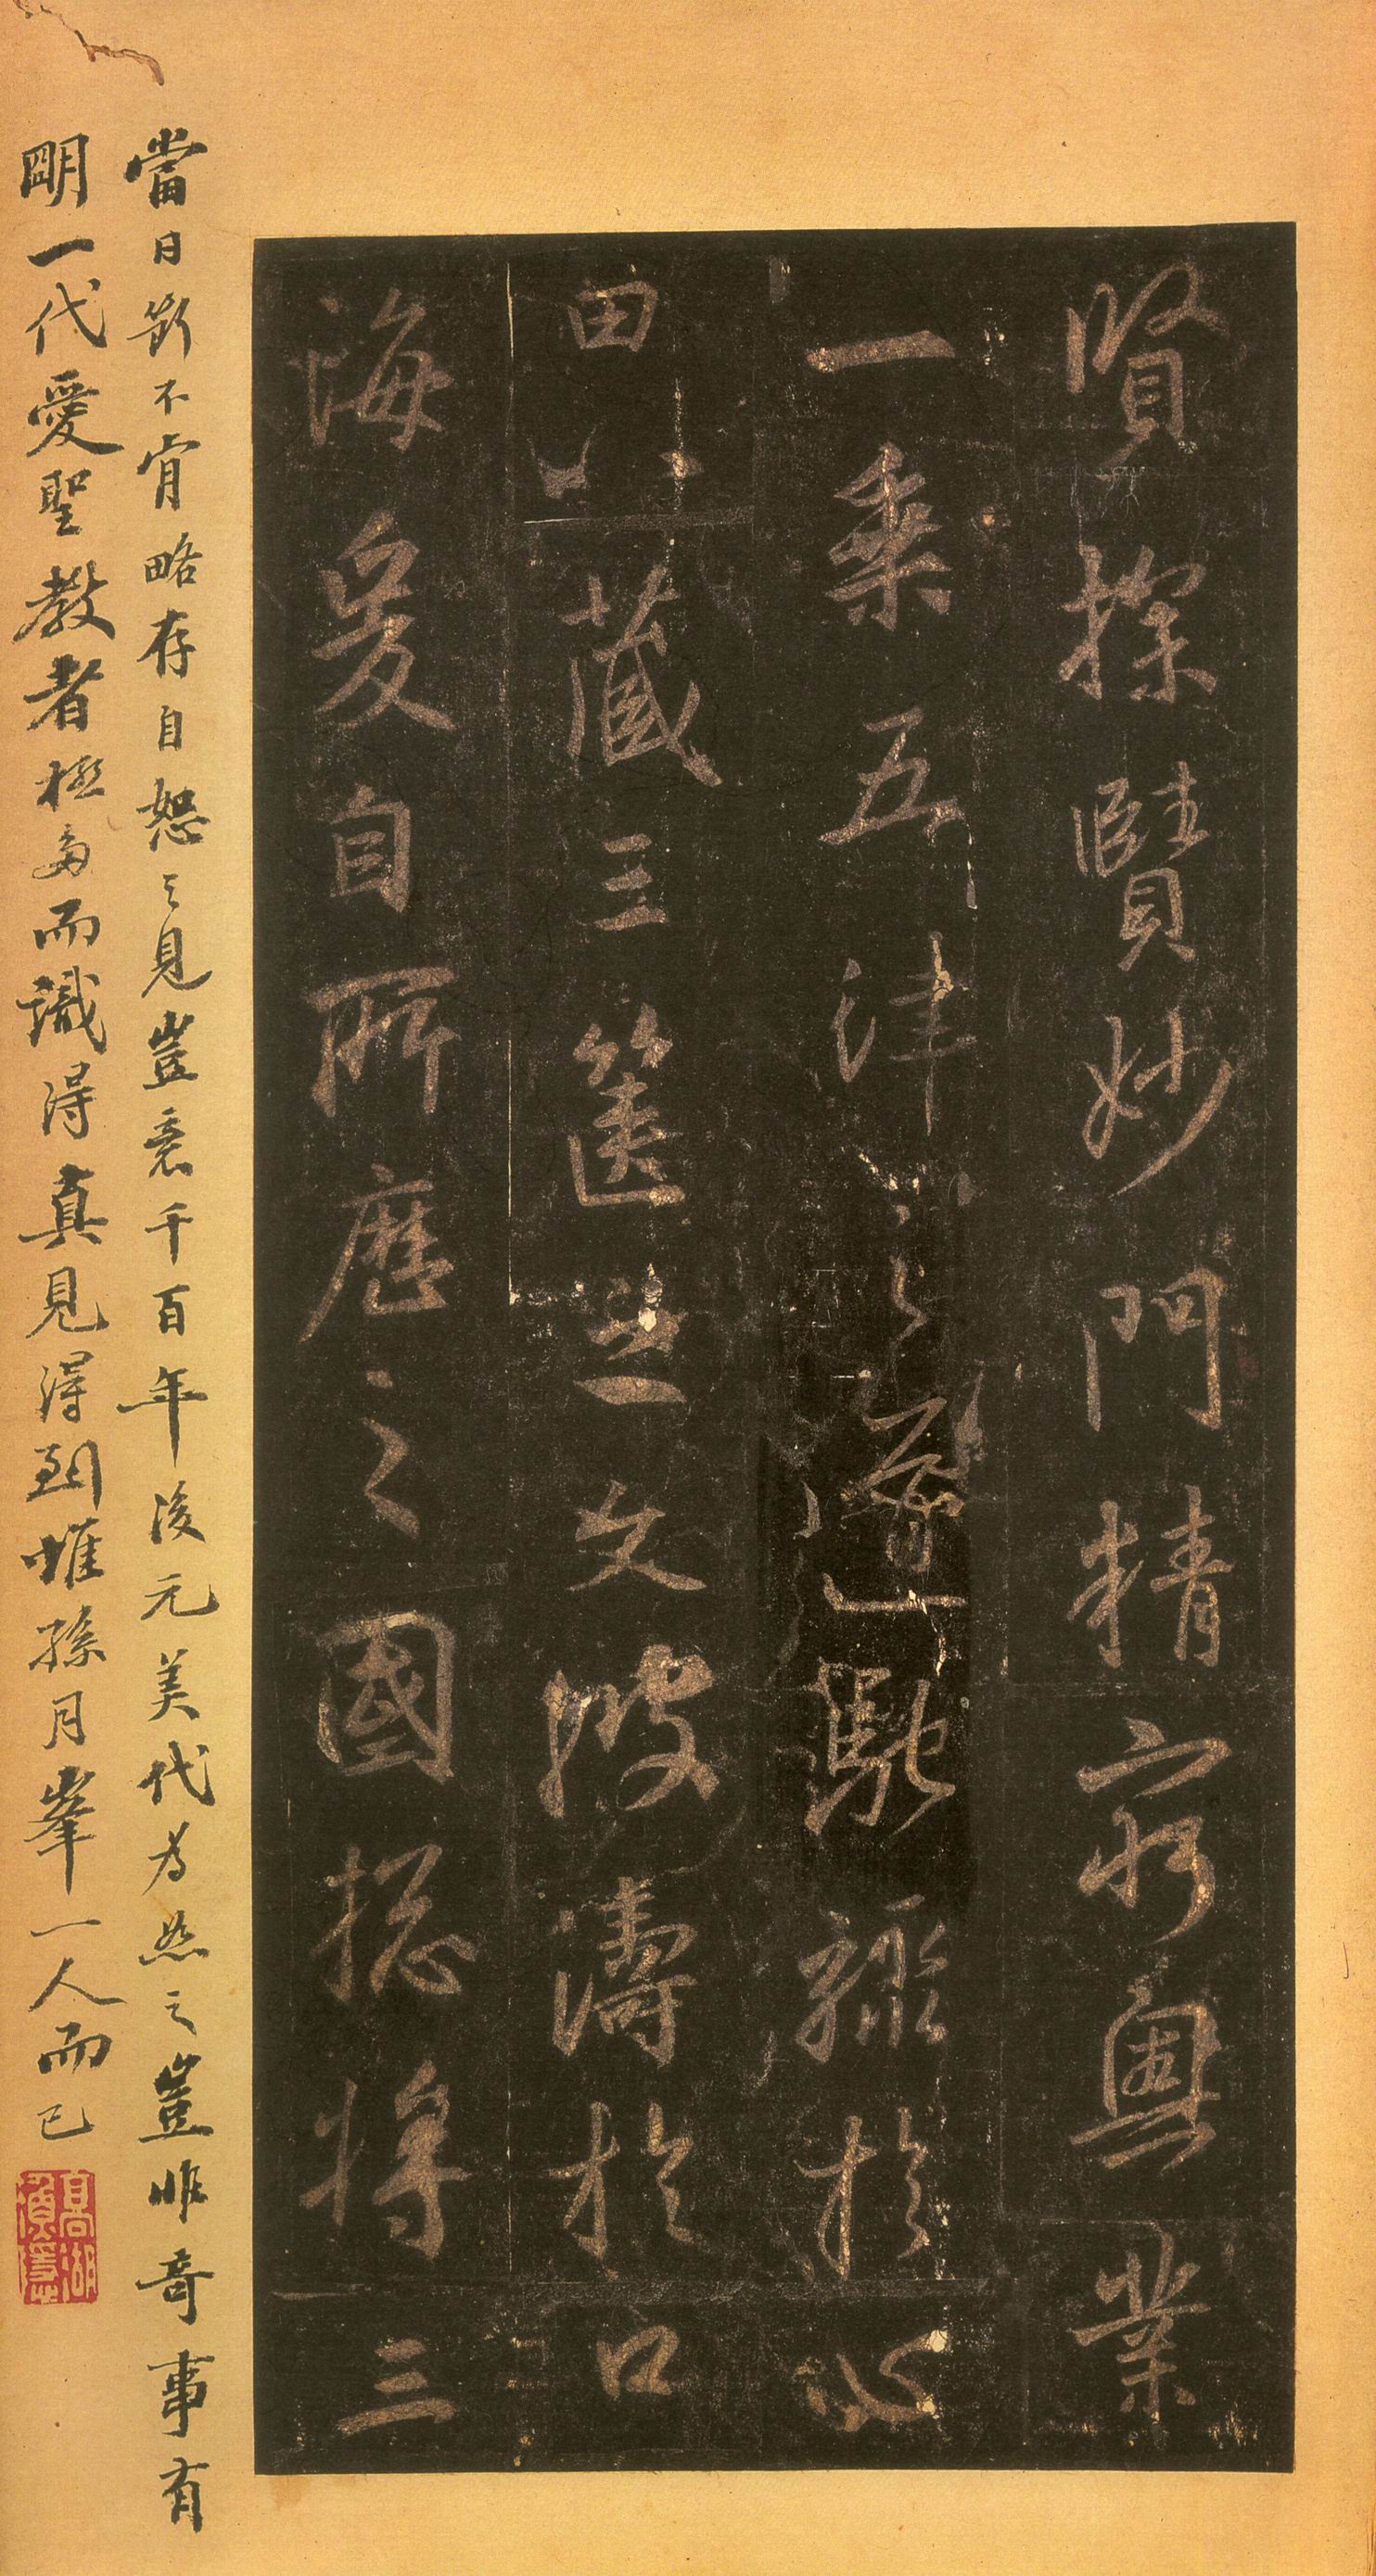 賢探賾妙門精窮奧業
一乘五津之道馳驟於心
田八藏三篋之文波濤於口
海爰自所歷之國總將三
當日斷不肯略存自恕之見豈意千百年後元美代為恕之豈非奇事有
明一代愛聖教者極多而識得真見得到惟孫月峯一人而已